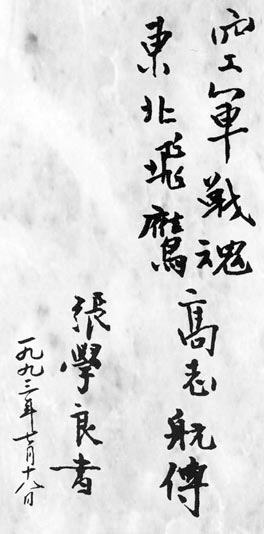 空军戰魂高志航傳
東北飛鷹
張學良書
一九九三年七月十八日